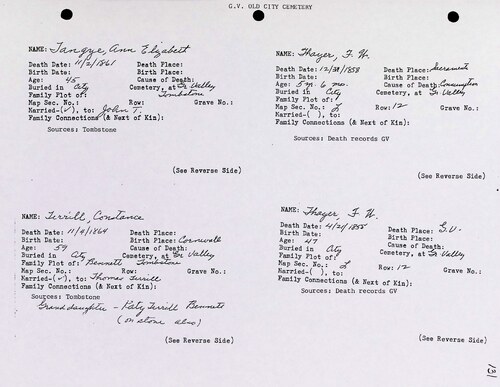 G.V. OLD CITY CEMETERY
NAME: Tangye, Ann Elizabeth
Death Date: 11/2/1861 Death Place:
Birth Date: Birth Place:
Age: 45 Cause of Death:
Buried in City Cemetery, at Gr. Valley
Family Plot of: Tombstone
Map Sec. No.: Row: Grave No.:
Married-(✓), to: John T.
Family Connections (& Next of Kin):
Sources: Tombstone
(See Reverse Side)
NAME: Thayer, F. W.
Death Date: 12/28/1858 Death Place: Sacramento
Birth Date: Birth Place:
Age: 5 yr. 6 mo. Cause of Death: Consumption
Buried in City Cemetery, at Gr. Valley
Family Plot of:
Map Sec. No.: L Row: 12 Grave No.:
Married-( ), to:
Family Connections (& Next of Kin):
Sources: Death records GV
(See Reverse Side)
NAME: Terrill, Constance
Death Date: 11/4/1864 Death Place:
Birth Date: Birth Place: Cornwall
Age: 59 Cause of Death:
Buried in City Cemetery, at Gr. Valley
Family Plot of: Bennett Tombstone
Map Sec. No.: Row: Grave No.:
Married-(✓), to: Thomas Terrill
Family Connections (& Next of Kin):
Sources: Tombstone
Granddaughter - Katy Terrill Bennett
(on stone also)
(See Reverse Side)
NAME: Thayer, F. W.
Death Date: Death Place: G.V.
Birth Date: Birth Place:
Age: 47 Cause of Death:
Buried in City Cemetery, at Gr. Valley
Family Plot of:
Map Sec. No.: L Row: 12 Grave No.:
Married-( ), to:
Family Connections (& Next of Kin):
Sources: Death records GV
(See Reverse Side)